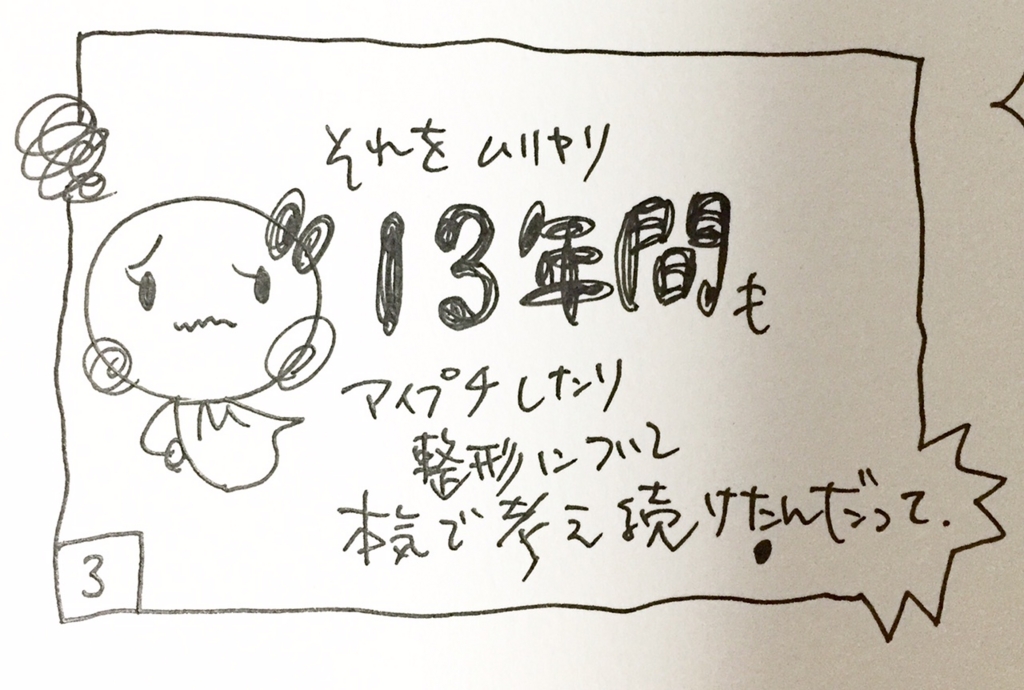 それをムリヤリ
13年間も
アイプチしたり
整形について
本気で考え続けたんだって.
3